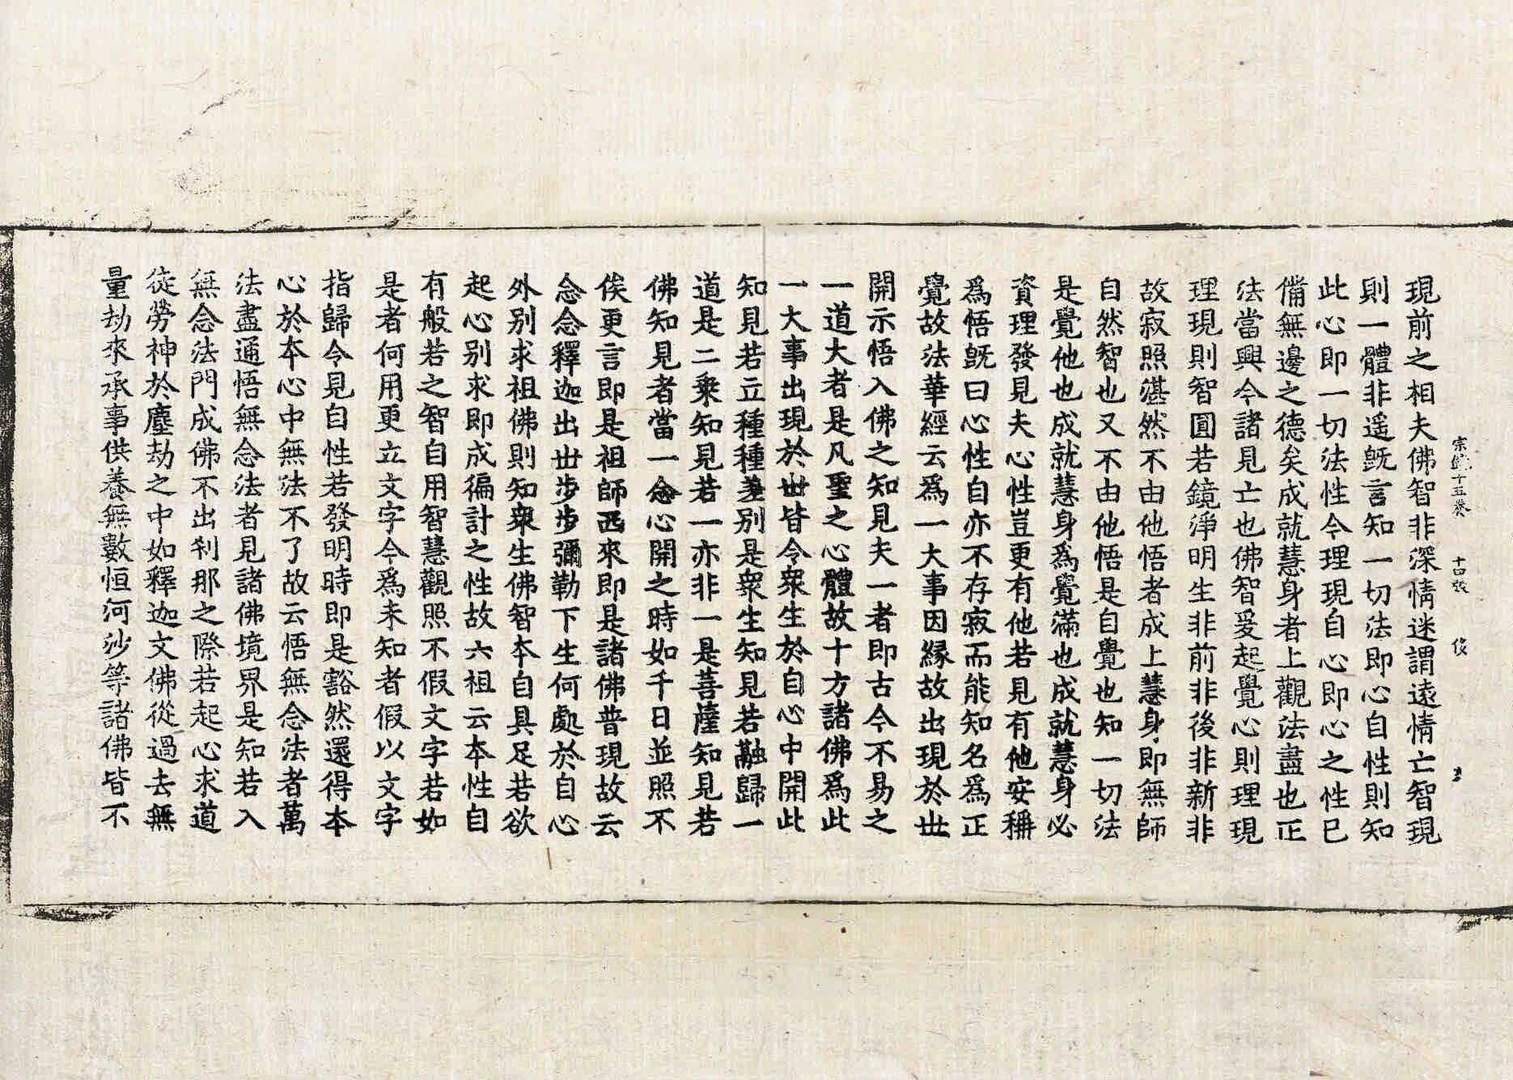 宗鏡十五卷 十四張 俊
現前之相夫佛智非深情迷謂遠情亡智現
則一體非遥旣言知一切法即心自性則知
此心即一切法性令理現自心即心之性已
備無邊之德矣成就慧身者上觀法盡也正
法當興今諸見亡也佛智爰起覺心則理現
理現則智圓若鏡淨明生非前非後非新非
故寂照湛然不由他悟者成上慧身即無師
自然智也又不由他悟是自覺也知一切法
是覺他也成就慧身爲覺滿也成就慧身必
資理發見夫心性豈更有他若見有他安稱
爲悟旣曰心性自亦不存寂而能知名爲正
覺故法華經云爲一大事因緣故出現於世
開示悟入佛之知見夫一者即古今不易之
一道大者是凡聖之心體故十方諸佛爲此
一大事出現於世皆令衆生於自心中開此
知見若立種種差別是衆生知見若融歸一
道是二乘知見若一亦非一是菩薩知見若
佛知見者當一念心開之時如千日並照不
俟更言即是祖師西來即是諸佛普現故云
念念釋迦出世步步彌勒下生何處於自心
外別求祖佛則知衆生佛智本自具足若欲
起心別求即成徧計之性故六祖云本性自
有般若之智自用智慧觀照不假文字若如
是者何用更立文字今爲未知者假以文字
指歸令見自性若發明時即是豁然還得本
心於本心中無法不了故云悟無念法者萬
法盡通悟無念法者見諸佛境界是知若入
無念法門成佛不出刹那之際若起心求道
徒勞神於塵劫之中如釋迦文佛從過去無
量劫來承事供養無數恒河沙等諸佛皆不